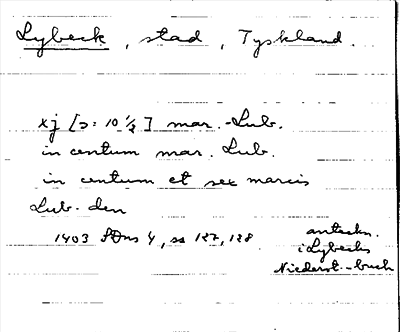 Lybeck, stad, Tyskland.
xj [ɔ: 10 ½] mar. Lub.
in centum mar. Lub.
in centum et sex marcis
Lub. den
1403 SDns 4, ss 127, 128.
anteckn.
i Lybecks
Niederst.-buch